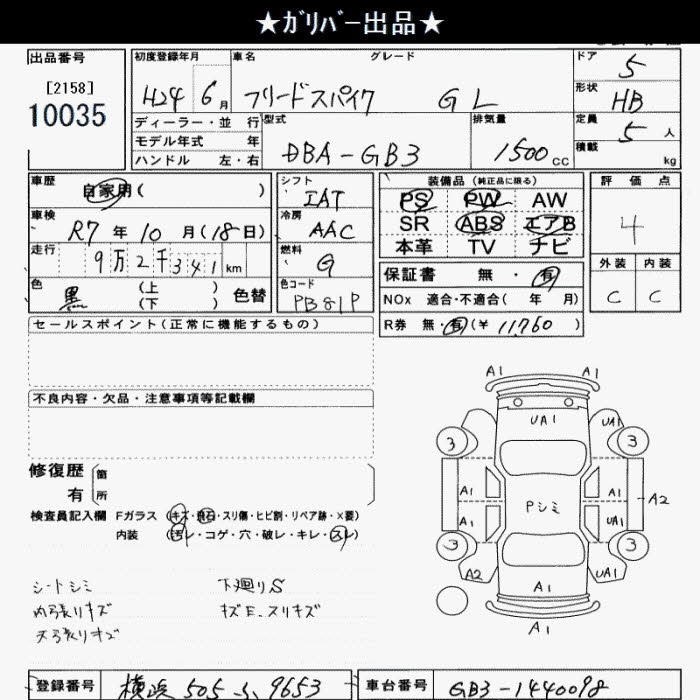 ★ｶﾞﾘﾊﾞｰ出品★
出品番号 初度登録年月 車名 グレード ドア 5
[2158]
10035 H24 6月 フリードスパイク G L 形状 HB
ディーラー・並行 型式 排気量 定員 5人
モデル年式 年 DBA-GB3 1500cc 積載 kg
ハンドル 左・右
車歴 自家用( ) シフト IAT 装備品(純正品に限る) 評価点
車検 R7年10月(18日) 冷房 AAC PS PW AW 4
SR ABS エアB
走行 9万2千341km 燃料 G 本革 TV ナビ 外装 内装
色 黒 (上 ) (下 ) 色替 色コード PB81P 保証書 無・有 C C
NOx 適合・不適合( 年 月)
R券 無・有(¥ 11,760
セールスポイント(正常に機能するもの)
不良内容・欠品・注意事項等記載欄
修復歴 箇
有 所
検査員記入欄 Fガラス (キズ・飛石・スリ傷・ヒビ割・リペア跡・×要)
内装 (汚レ・コゲ・穴・破レ・キレ・スレ)
シートシミ 下廻りS
内張りキズ キズE、スリキズ
天張りキズ
A1 A1
UA1 UA1
3 3
A1 A1 A2
Pシミ
A1 UA1
3 3
A2 A1 UA1
A1
登録番号 横浜 505 ふ 9653 車台番号 GB3-1440098